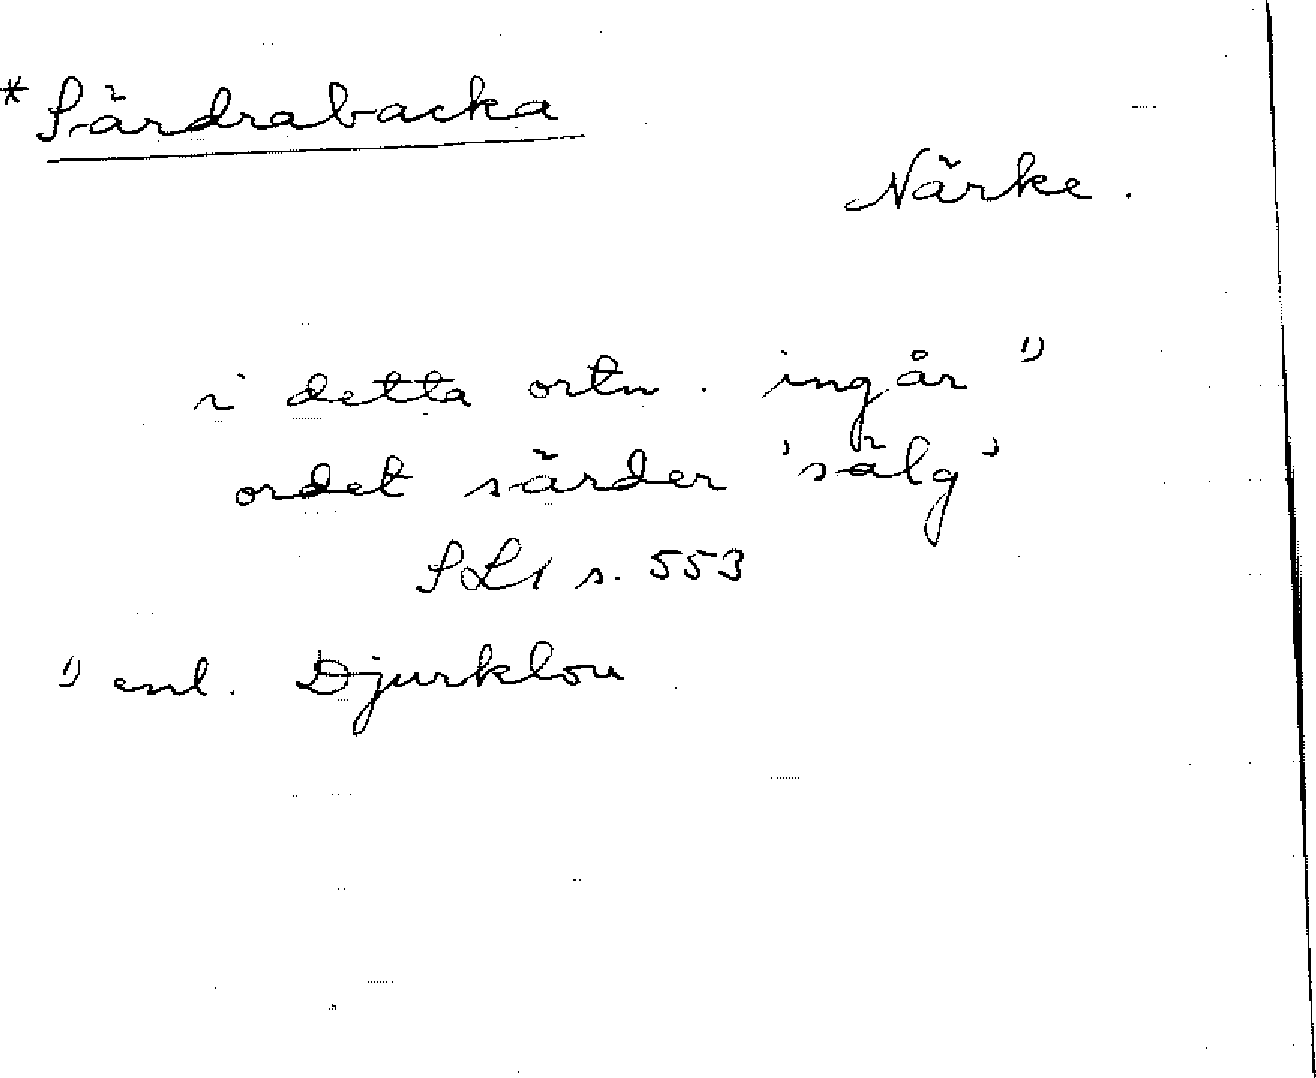 * Särdrabacka
Närke.
i detta ortn. ingår 1)
ordet särder 'sälg'
SL1 s. 553
1) enl. Djurklou